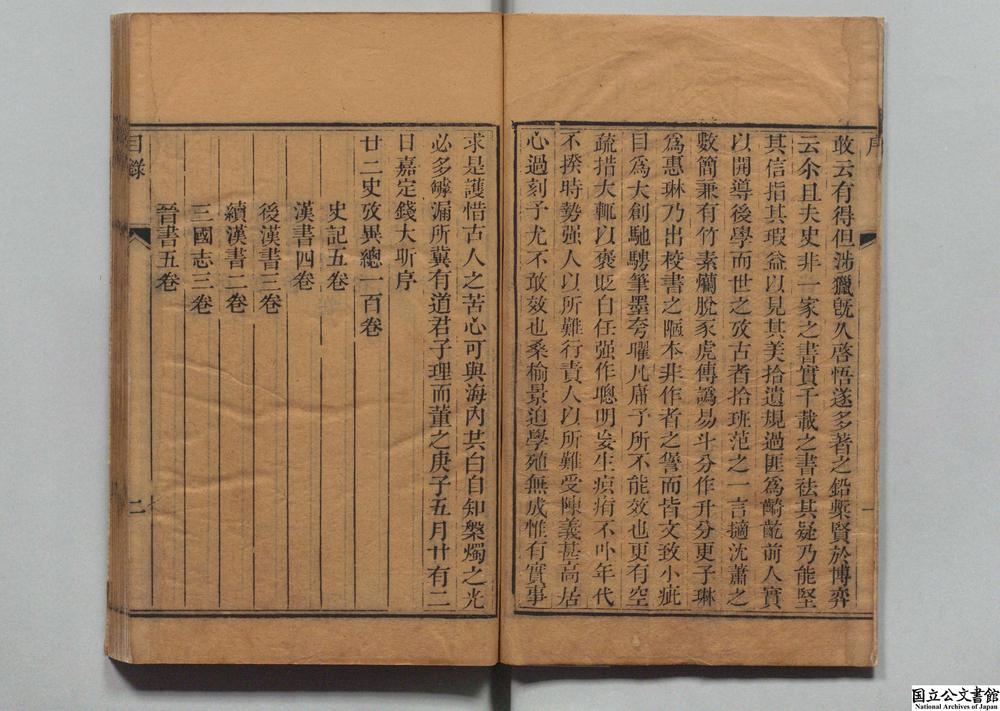 序
敢云有得但涉獵旣久啓悟遂多著之鉛槧賢於博弈
云尒且夫史非一家之書實千載之書袪其疑乃能堅
其信指其瑕益以見其美拾遺規過匪爲齮齕前人實
以開導後學而世之攷古者拾班范之一言擿沈蕭之
數簡兼有竹素爛脫豕虎傳譌易斗分作升分更子琳
爲惠琳乃出校書之陋本非作者之諐而皆文致小疵
目爲大創馳騁筆墨夸曜凡庸予所不能效也更有空
疏措大輒以褒貶自任强作聰明妄生疻痏不卟年代
不揆時勢强人以所難行責人以所難受陳義甚高居
心過刻予尤不敢效也桑榆景迫學殖無成惟有實事
一
求是護惜古人之苦心可與海內共白自知槃燭之光
必多罅漏所冀有道君子理而董之庚子五月廿有二
日嘉定錢大昕序
廿二史攷異總一百卷
史記五卷
漢書四卷
後漢書三卷
續漢書二卷
三國志三卷
晉書五卷
目錄
二
国立公文書館
National Archives of Japan